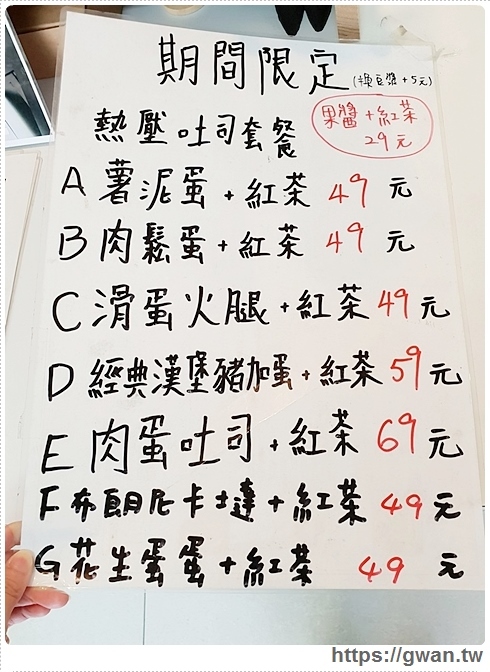 期間限定
(換豆漿+5元)
熱壓吐司套餐
果醬+紅茶
29元
A 薯泥蛋+紅茶 49元
B 肉鬆蛋+紅茶 49元
C 滑蛋火腿+紅茶 49元
D 經典漢堡豬加蛋+紅茶 59元
E 肉蛋吐司+紅茶 69元
F 布朗尼卡士達+紅茶 49元
G 花生蛋蛋+紅茶 49 元
https://gwan.tw